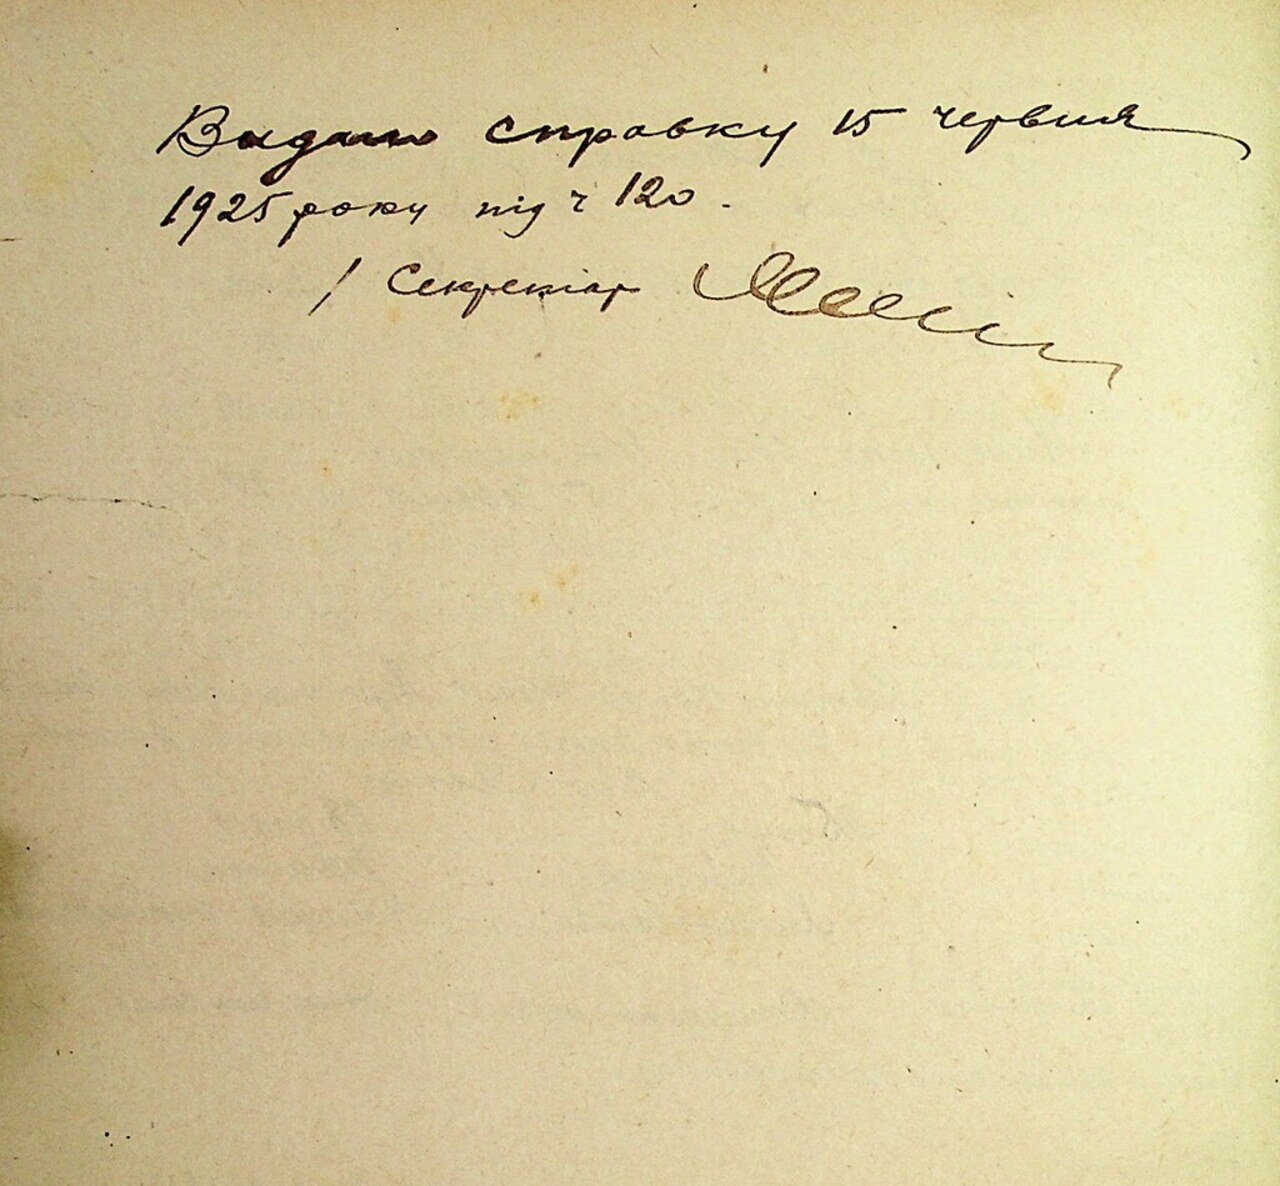 Видано справку 15 червня
1925 року під ч 120.
/ Секретар